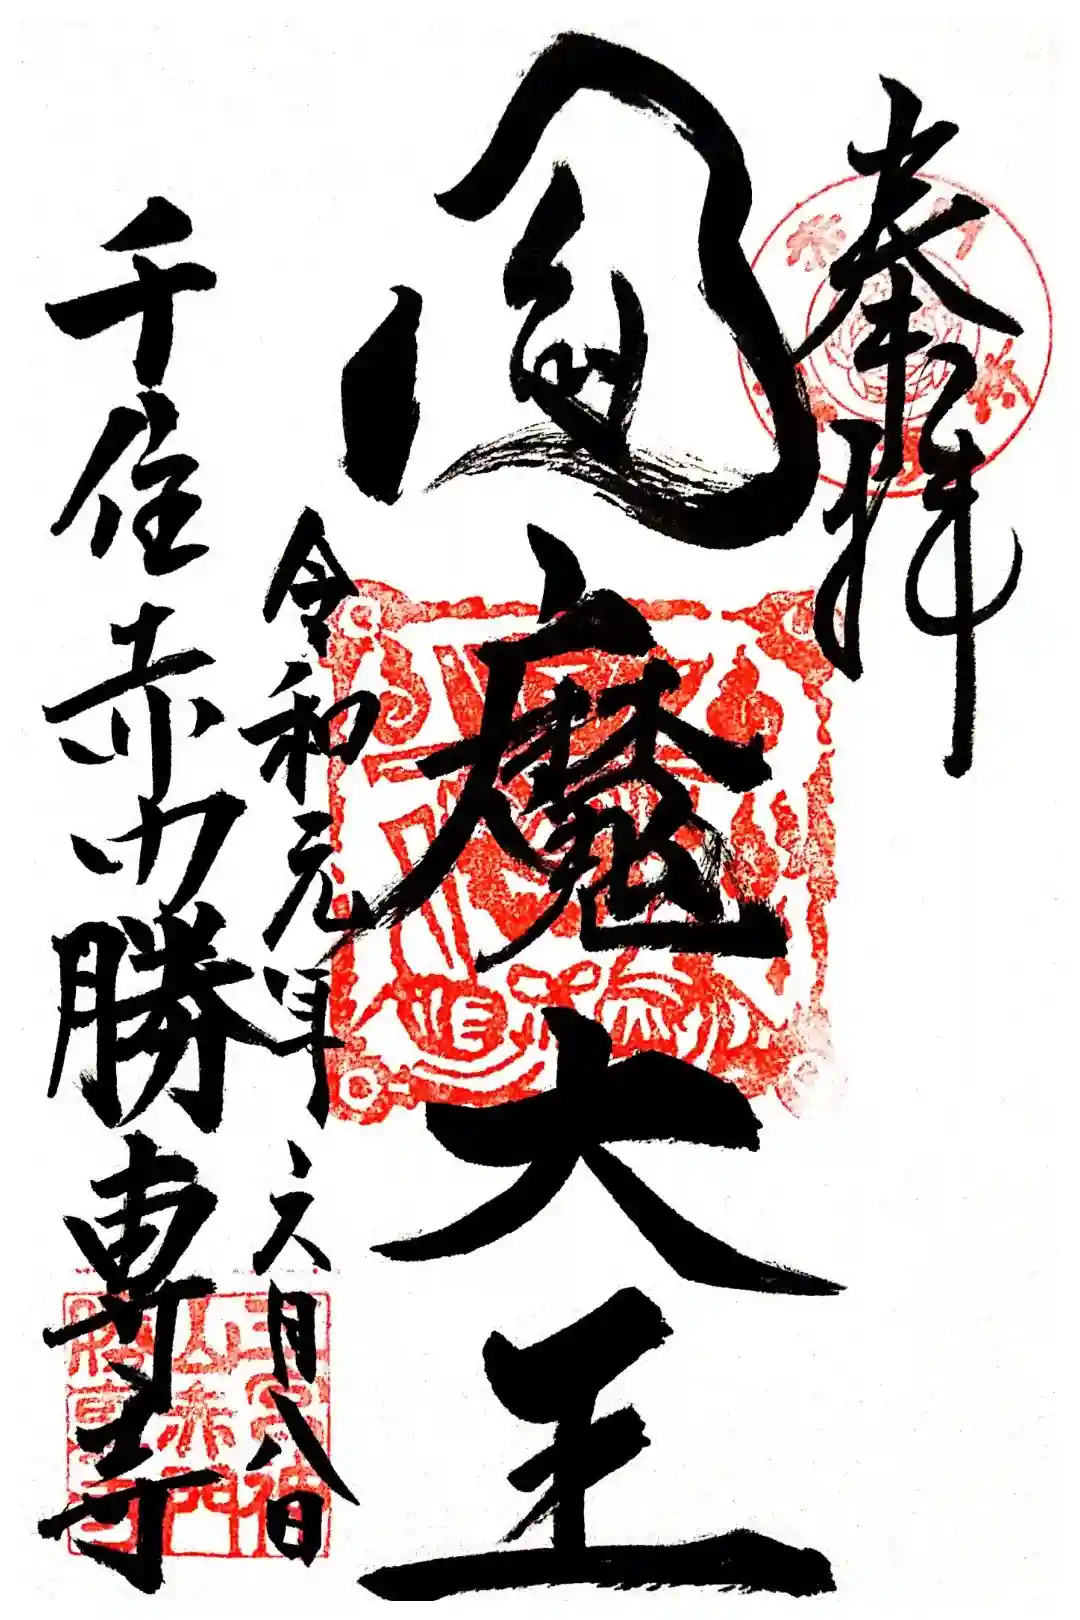 奉拝
閻魔大王
令和元年六月八日
千住赤門勝専寺
三宮神
山赤門
勝專寺